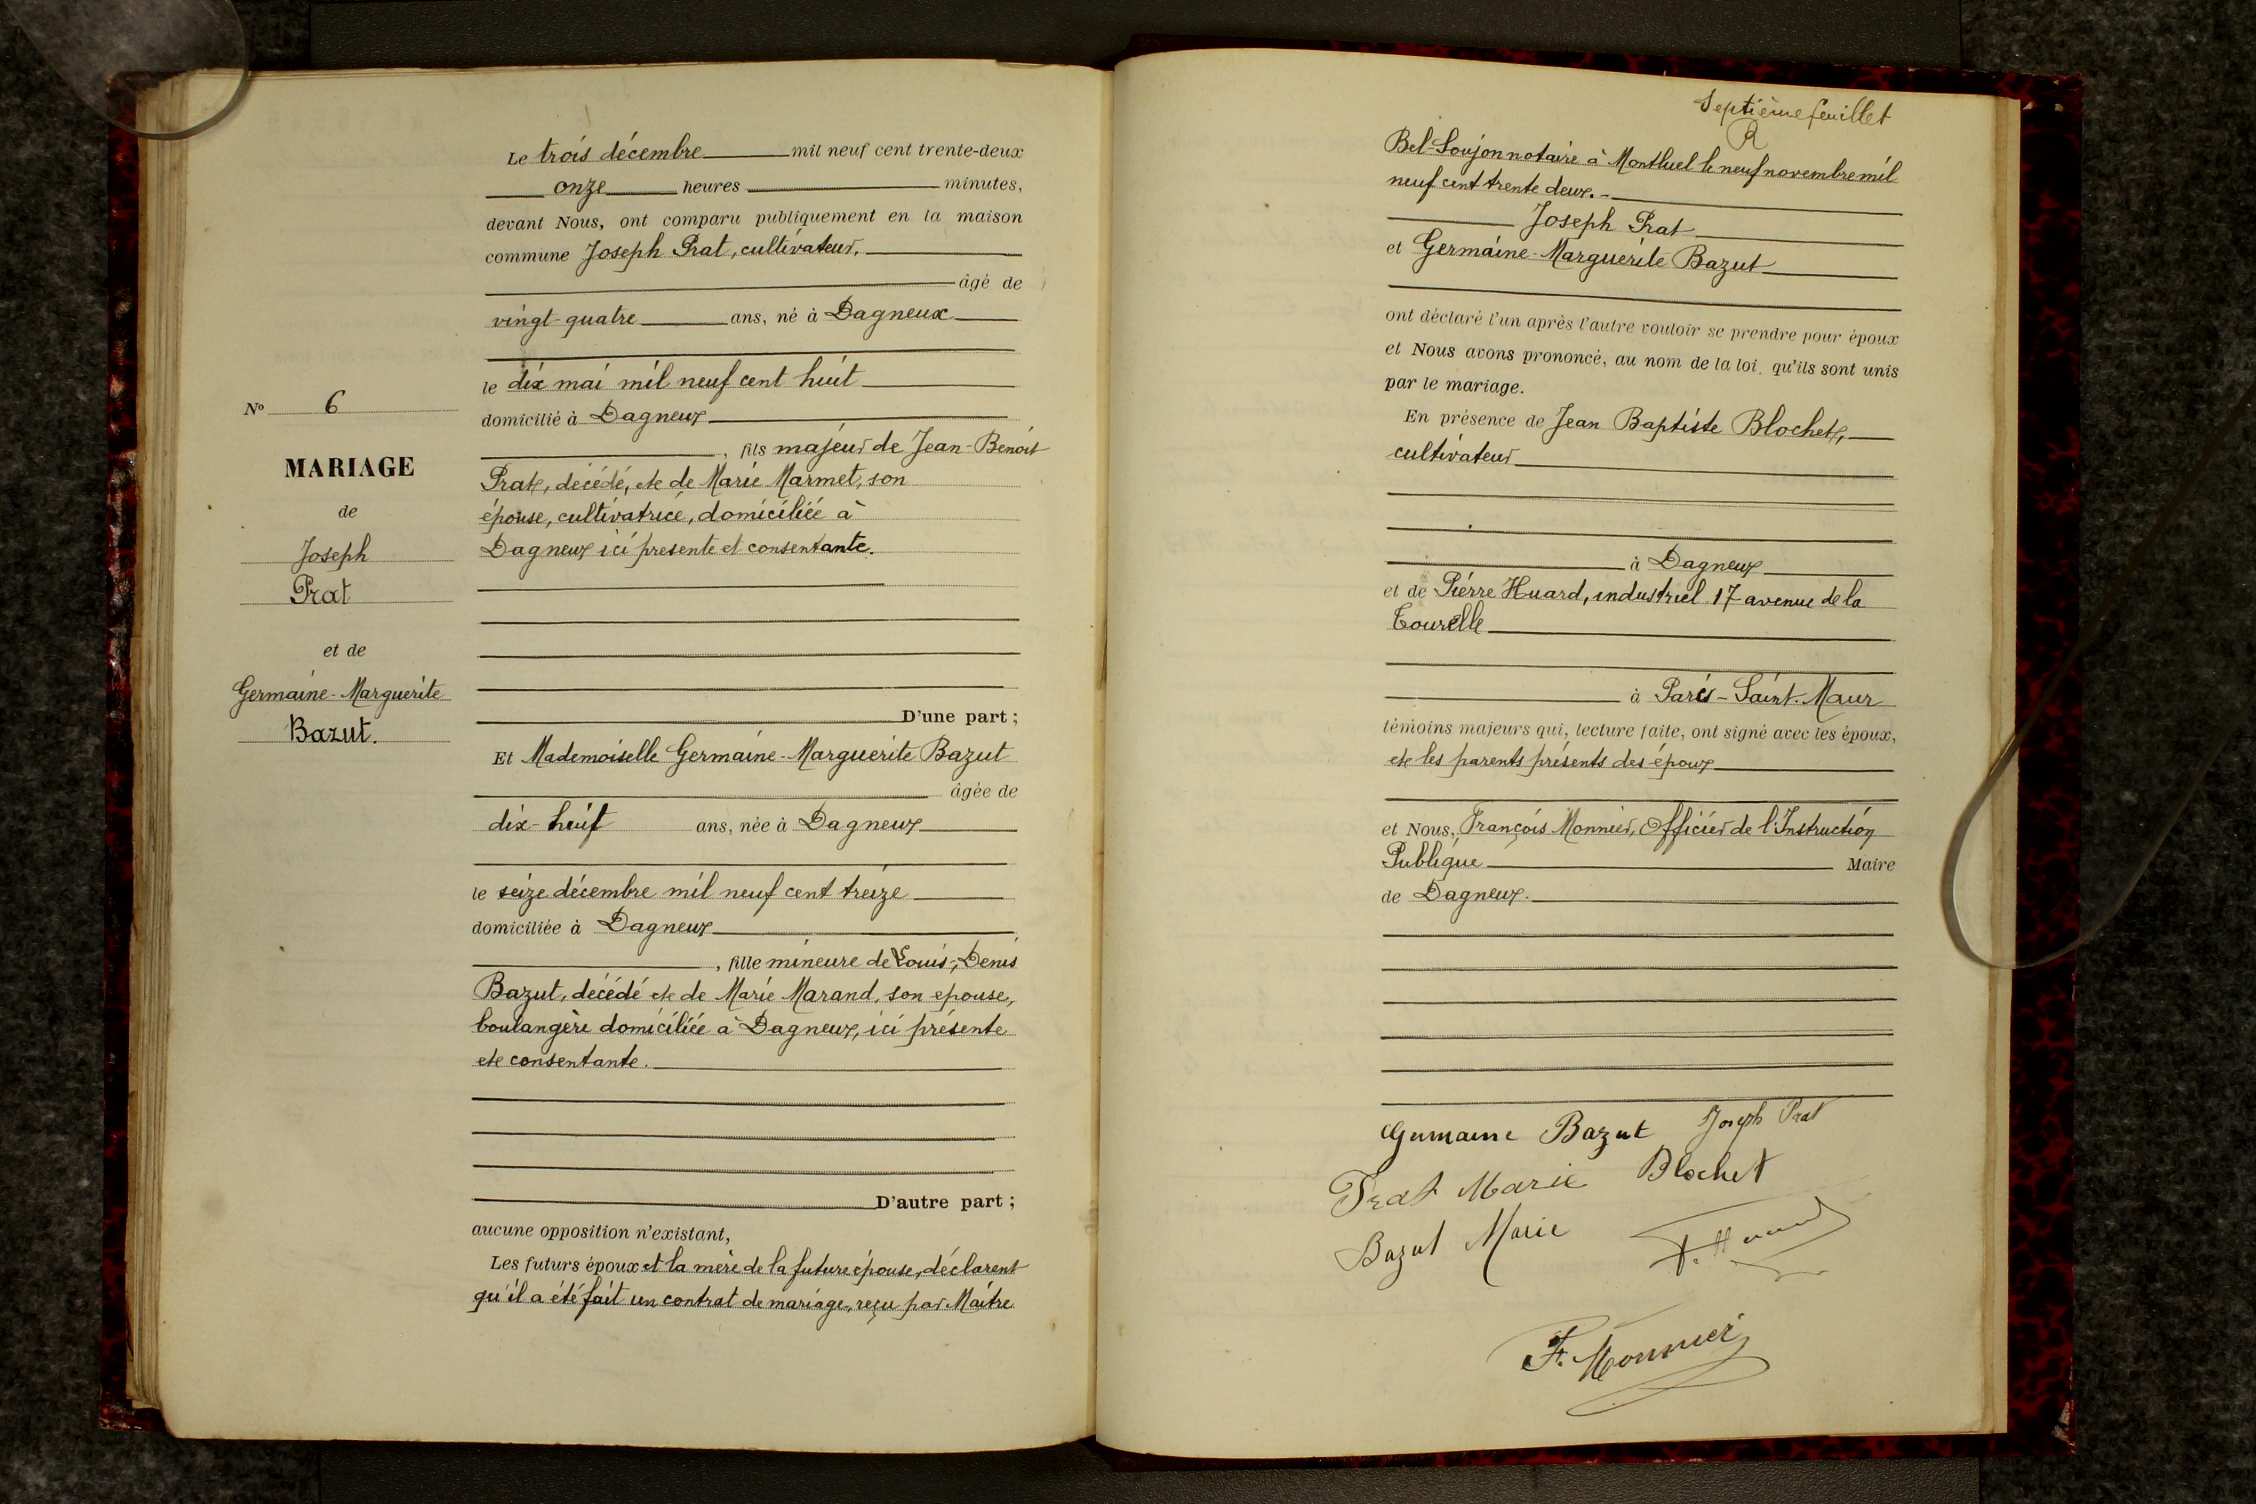 Le trois décembre mil neuf cent trente-deux
onze heures minutes,
devant Nous, ont comparu publiquement en la maison
commune Joseph Prat, cultivateur,
âgé de
vingt-quatre ans, né à Dagneux
le dix mai mil neuf cent huit
domicilié à Dagneux
, fils majeur de Jean-Benoit
Prat, décédé, et de Marie Marmet, son
épouse, cultivatrice, domiciliée à
Dagneux ici presente et consentante.
D'une part ;
Nº 6
MARIAGE
de
Joseph
Prat
et de
Germaine-Marguerite
Bazut.
Et Mademoiselle Germaine-Marguerite Bazut
âgée de
dix-huit ans, née à Dagneux
le seize décembre mil neuf cent treize
domiciliée à Dagneux
, fille mineure de Louis-Denis
Bazut, décédé et de Marie Marand, son epouse,
boulangère domiciliée à Dagneux, ici présente
et consentante.
D'autre part ;
aucune opposition n'existant,
Les futurs époux et la mère de la future épouse, déclarent
qu'il a été fait un contrat de mariage, reçu par Maître
Septième feuillet
R
Bel-Soujon notaire à Montluel le neuf novembre mil
neuf cent trente deux.-
Joseph Prat
et Germaine-Marguerite Bazut
ont déclaré l'un après l'autre vouloir se prendre pour époux
et Nous avons prononcé, au nom de la loi, qu'ils sont unis
par le mariage.
En présence de Jean Baptiste Blochet,
cultivateur
à Dagneux
et de Pierre Huard, industriel 17 avenue de la
Tourelle
à Paris-Saint-Maur
témoins majeurs qui, lecture faite, ont signé avec les époux,
et les parents présents des époux
et Nous, François Monnier, Officier de l'Instruction
Publique Maire
de Dagneux.
Germaine Bazut Joseph Prat
Prat Marie Blochet
Bazut Marie P. Huard
F. Monnier